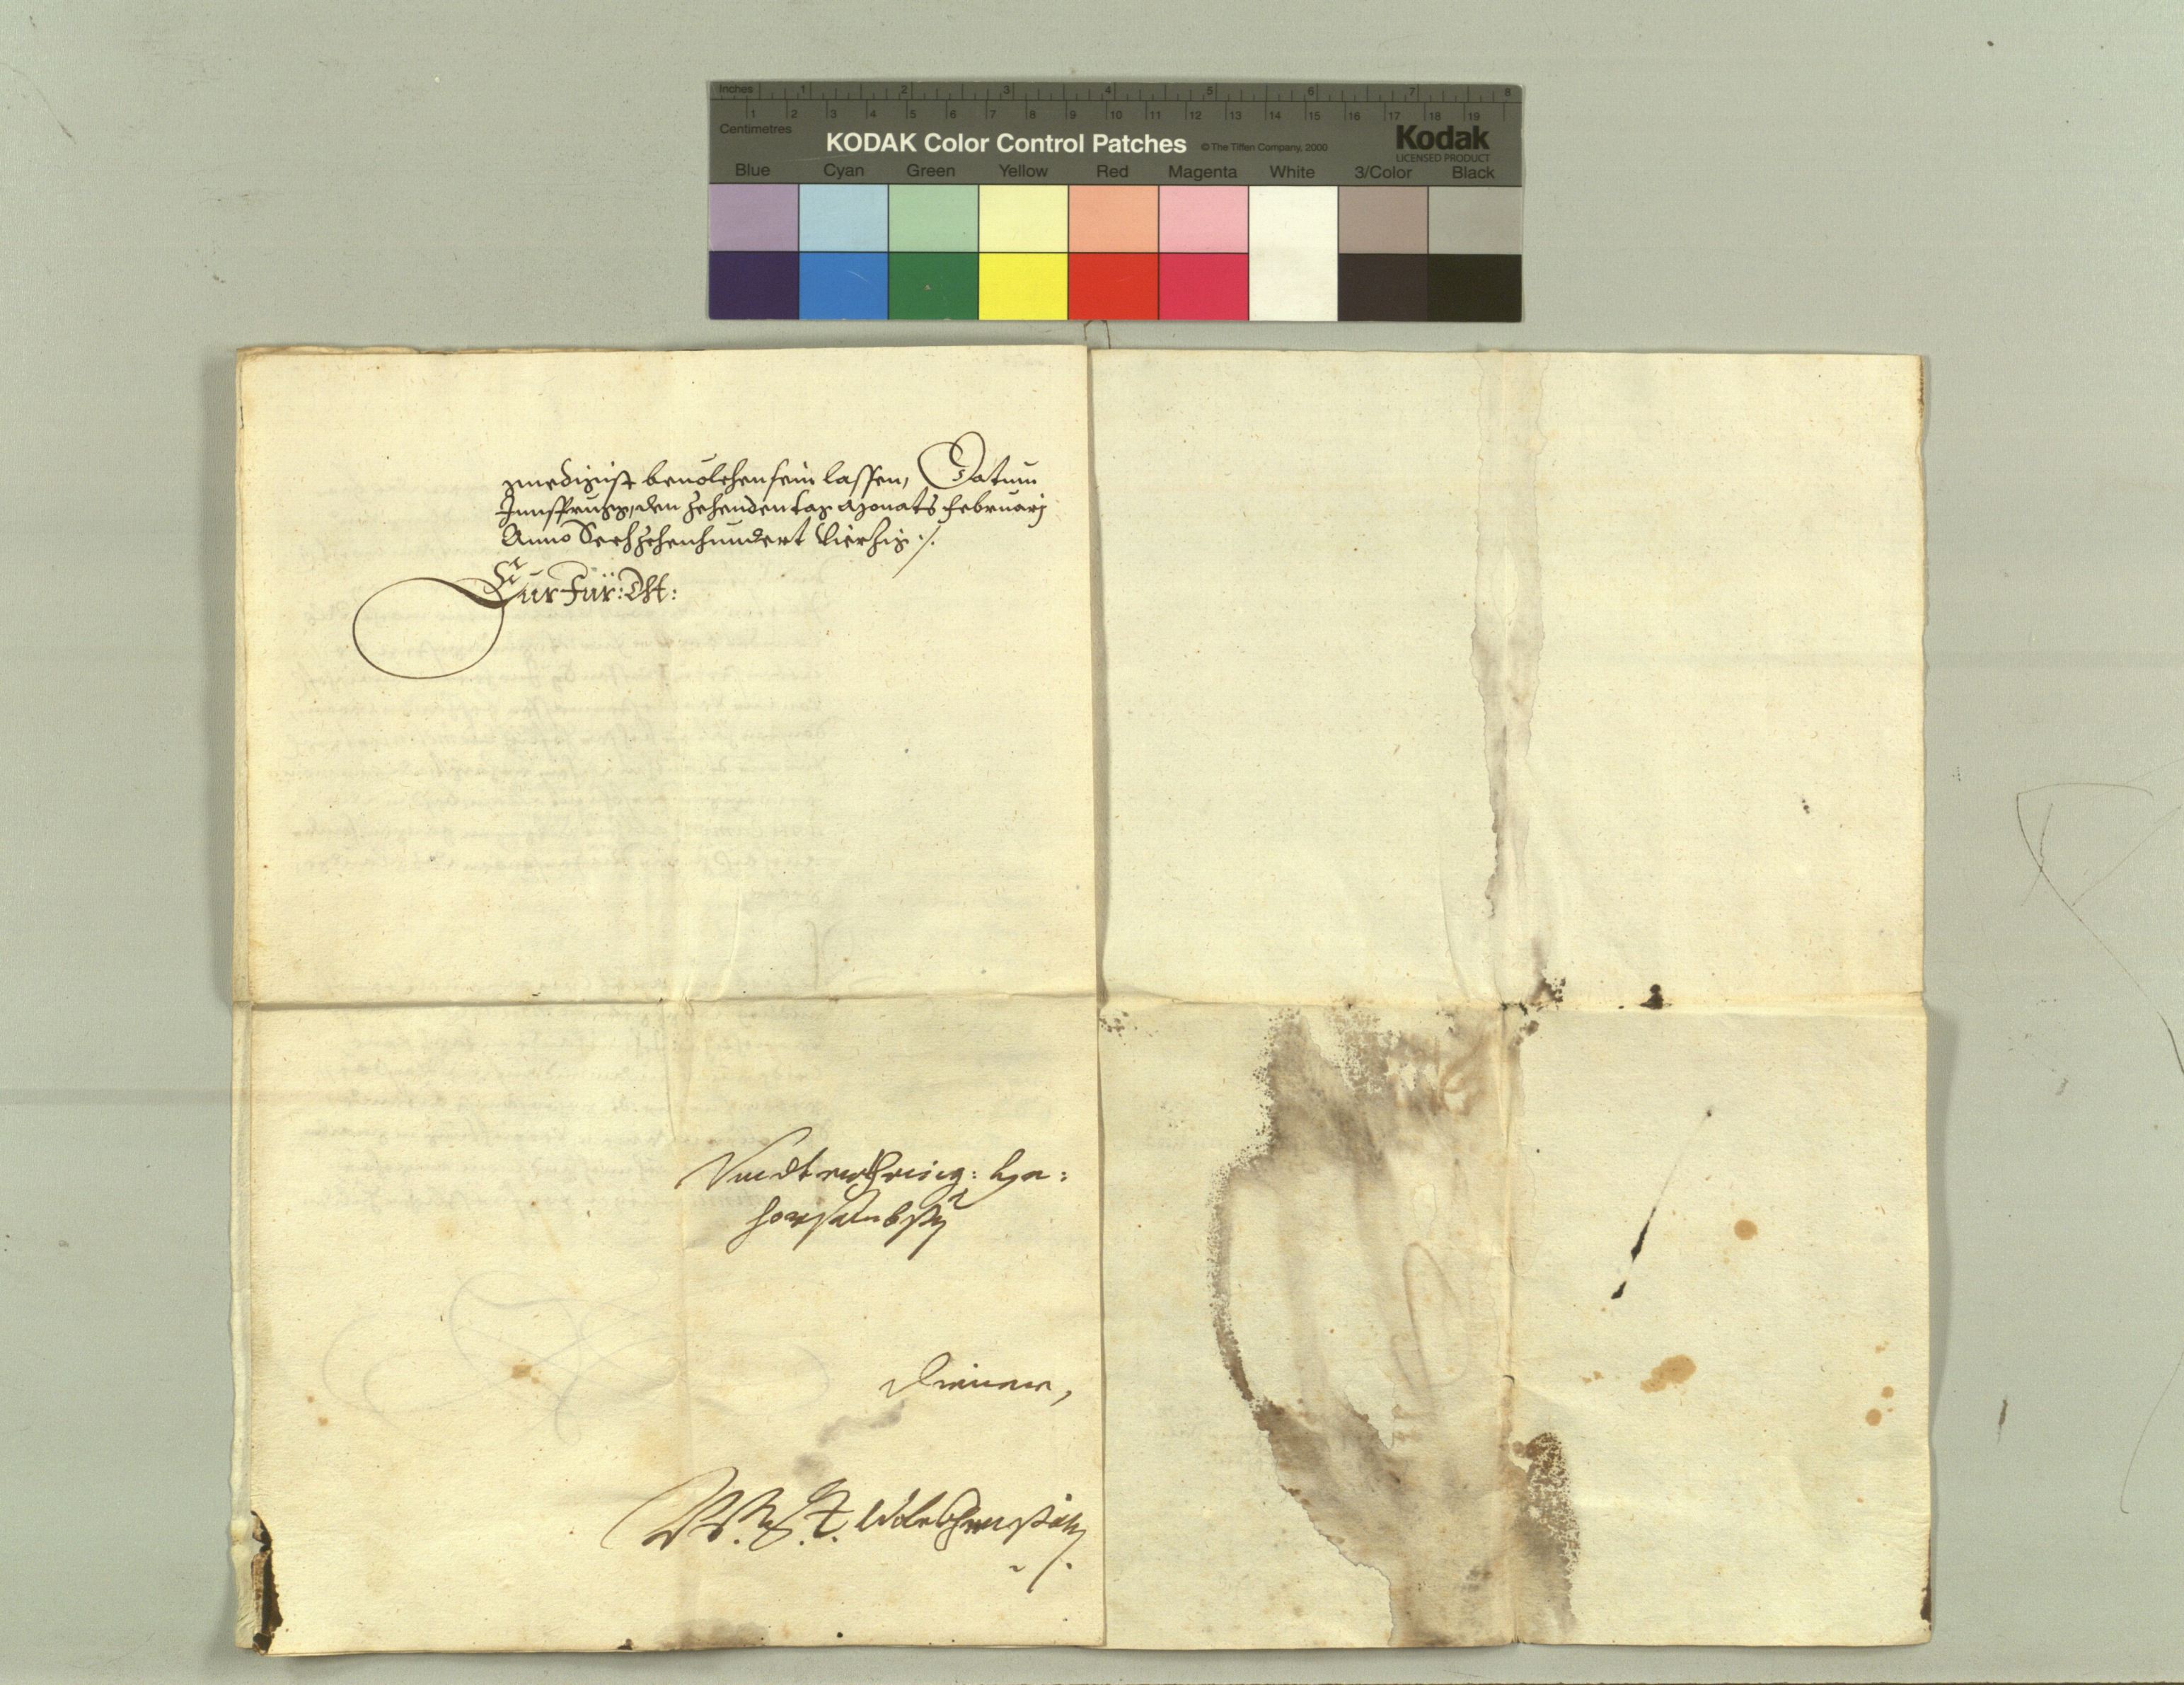 Inches 1 2 3 4 5 6 7 8
1 2 3 4 5 6 7 8 9 10 11 12 13 14 15 16 17 18 19
Centimetres
KODAK Color Control Patches © The Tiffen Company, 2000 Kodak
LICENSED PRODUCT
Blue Cyan Green Yellow Red Magenta White 3/Color Black
gnedigist beuolchen sein lassen, Datum
Innsprugg, den zehenden tag Monats Februarj
Anno Sechzehenhundert Vierzig ./.
Eur Für: Dht:
Vndterthenig: 
gehorsambster
Diener,